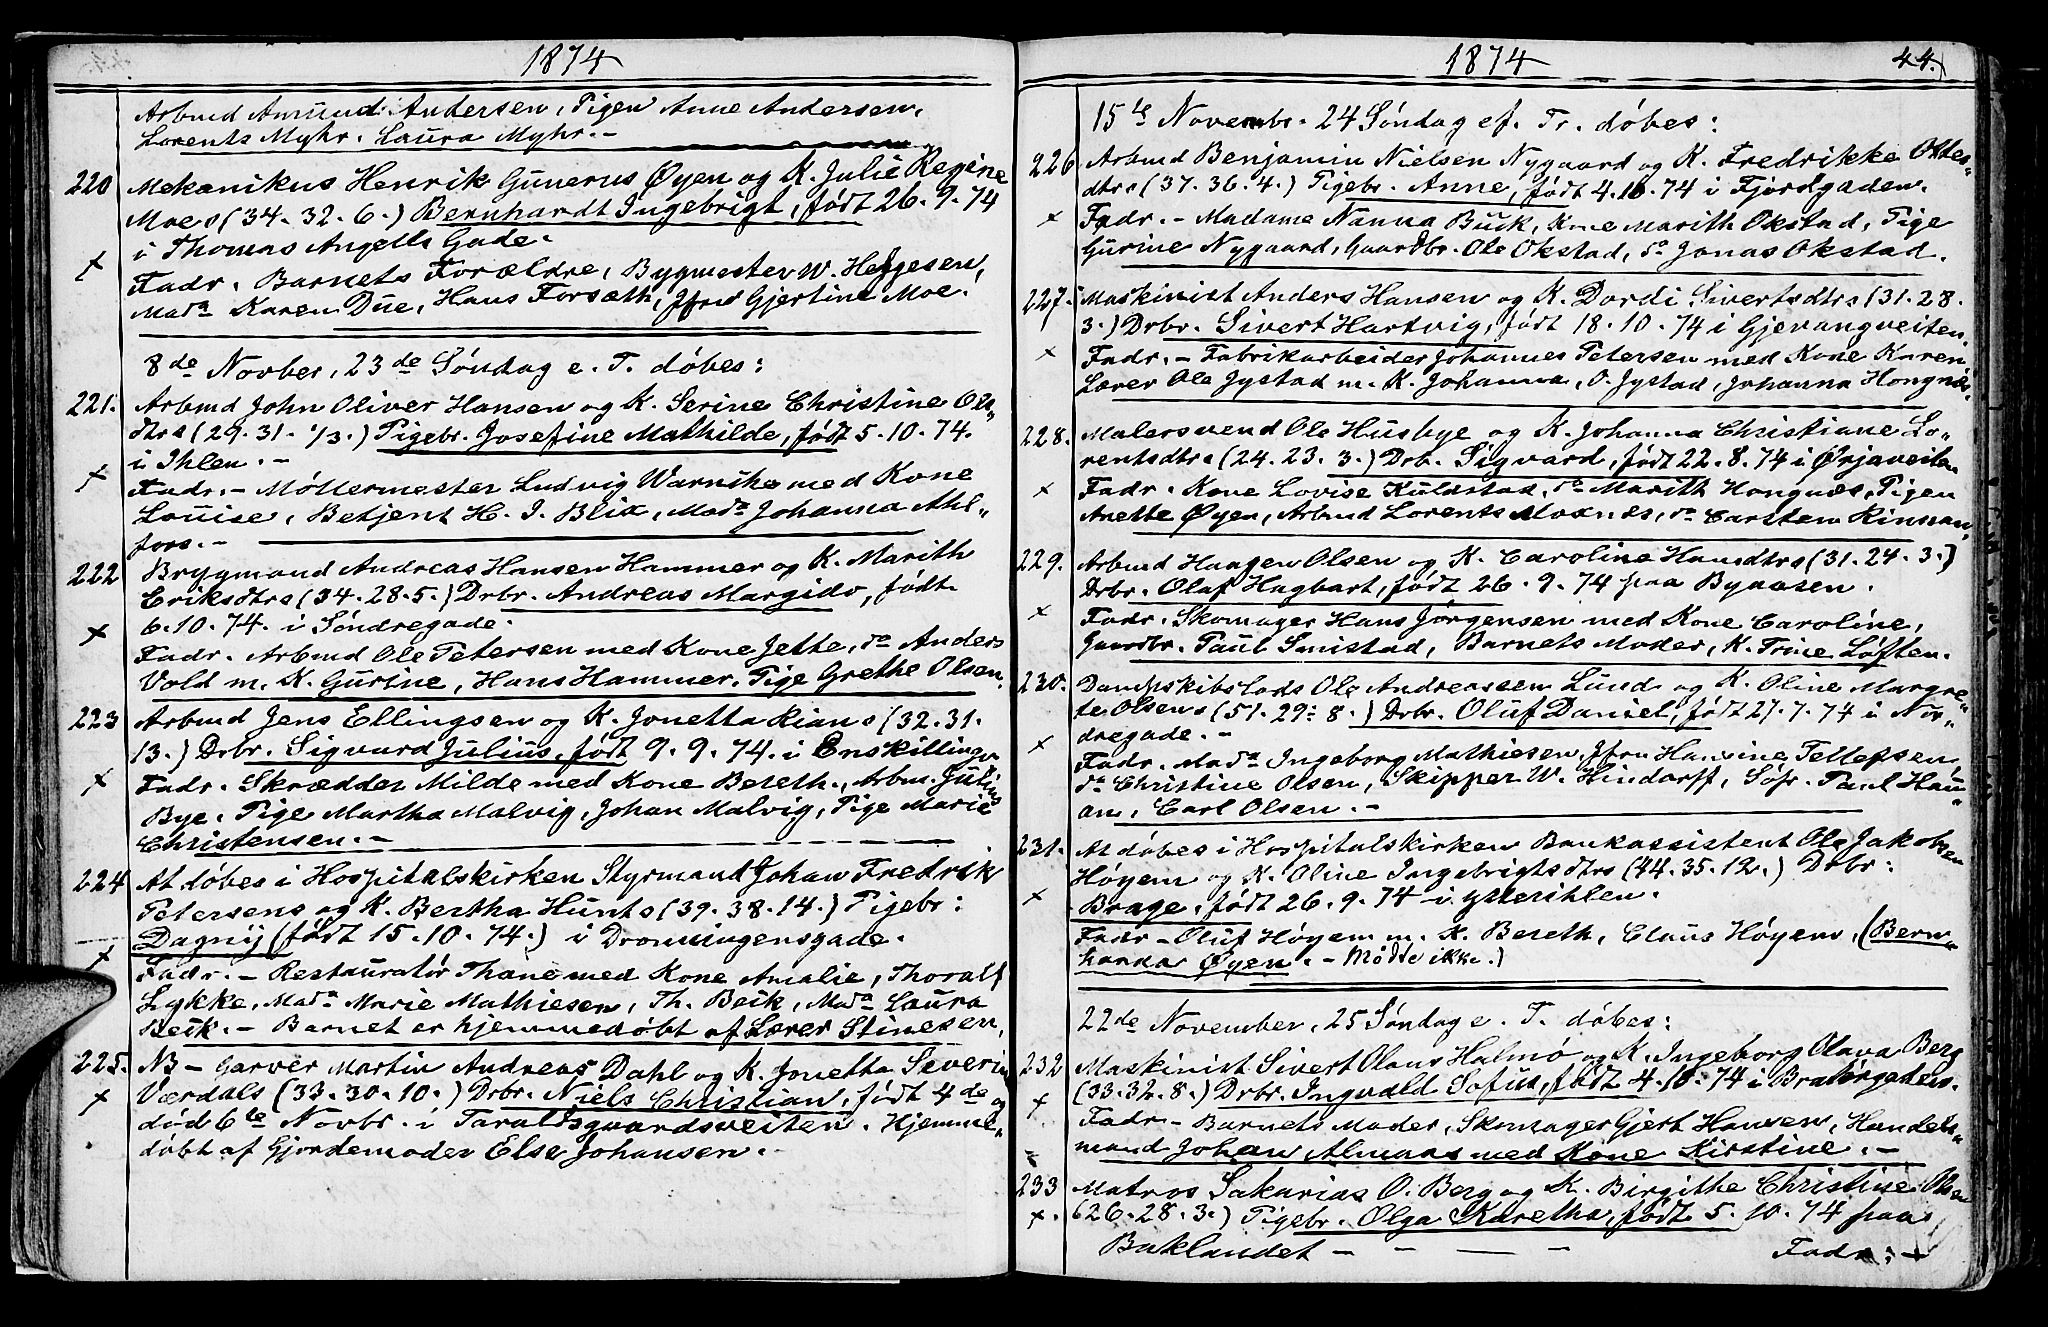 1874
Arbmd Amund Andersen, Pigen Anne Andersen,
Lorents Myhr. Laura Myhr. -
220 Mekanikus Henrik Gunerus Øyen og K. Julie Regine
Moes (34. 32. 6.) Bernhardt Ingebrigt, født 26. 9. 74
i Thomas Angells Gade.
x Fadr. Barnets Forældre, Bygmester W. Helgesen,
Mada Karen Due, Hans Forsæth, Jfru Gjertine Moe.
8de Novber, 23de Søndag e. T. døbes:
221. Arbmd John Oliver Hansen og K. Serine Christine Ols„
dtrs (29. 31. 1/3.) Pigebr. Josefine Mathilde, født 5. 10. 74.
i Ihlen. -
x Fadr. - Møllermester Ludvig Warnike med Kone
Louise, Betjent H. I. Blix, Mada Johanna Ahl„
fors. -
222 Brygmand Andreas Hansen Hammer og K. Marith
Eriksdtrs (34. 28. 5.) Drbr. Andreas Margido, født
x 6. 10. 74. i Søndregade.
Fadr. Arbmd Ole Petersen med Kone Jette, do Anders
Vold m. K. Gurine, Hans Hammer. Pige Grethe Olsen.
223 Arbmd Jens Ellingsen og K. Jonetta Rians (32. 31.
13.) Drbr. Sigvard Julius, født 9. 9. 74. i Enskillinge
x Fadr. Skrædder Milde med Kone Bereth., Arbm. Julius
Bye, Pige Martha Malvig, Johan Malvig, Pige Marie
Christensen. -
224 At døbes i Hospitalskirken Styrmand Johan Fredrik
Petersens og K. Bertha Hunts (39. 38. 14.) Pigebr:
Dagny (født 15. 10. 74.) i Dronningensgade.
x Fadr. - Restauratør Thane med Kone Amalie, Thoralf
Lykke, Mada Marie Mathiesen, Th. Beck, Mada Laura
Beck. - Barnet er hjemmedøbt af Lærer Stinesen,
225. NB - Garver Martin Andreas Dahl og K. Jonetta Severin
x Værdals (33. 30. 10.) Drbr. Niels Christian, født 4de og
død 6te Novbr. i Taraldsgaardsveiten. Hjemme„
døbt af Gjordemoder Else Johansen.
1874 44.
15de Novembr. 24 Søndag ef. Tr. døbes:
226 Arbmd Benjamin Nielsen Nygaard og K. Fredrikke Oldes„
dtrs (37. 36. 4.) Pigebr. Anne, født 4. 10. 74 i Fjordgaden.
x Fadr. - Madame Nanna Buck, Kone Marith Okstad, Pige
Gurine Nygaard, Gaardbr. Ole Okstad, do Jonas Okstad.
227. Maskinist Anders Hansen og K. Dordi Sivertsdtrs (31. 28.
3.) Drbr. Sivert Hartvig, født 18. 10. 74 i Gjevangveiten.
x Fadr. - Fabrikarbeider Johannes Petersen med Kone Karen,
Lærer Ole Jystad m. K. Johanna, O. Jystad, Johanna Hongnæs.
228. Malersvend Ole Husbye og K. Johanna Christiane Lo„
rentsdtrs (24. 23. 3.) Drb. Sigvard, født 22. 8. 74 i Ørjaveiten
x Fadr. Kone Lovise Kuldstad, do Marith Hongnæs, Pigen
Anette Øyen, Arbmd Lorents Moxnes, do Carsten Kinnan.
229. Arbmd Haagen Olsen og K. Caroline Hansdtrs (31. 24. 3.)
Drbr. Olaf Hagbart, født 26. 9. 74 paa Byaasen.
x Fadr. Skomager Hans Jørgensen med Kone Caroline,
Gaardbr. Paul Smistad, Barnets Moder, K. Trine Løften.
230. Dampskibslods Ole Andreassen Lund og K. Oline Margre„
te Olsens (51. 29. 8.) Drbr. Oluf Daniel, født 27. 7. 74 i Nor„
dregade. -
x Fadr. Mada Ingeborg Mathiesen, Jfru Hansine Tellefsen,
do Christine Olsen, Skipper W. Hindorff, Søfr. Paul Hau„
an, Carl Olsen. -
231. At døbes i Hospitalskirken Bankassistent Ole Jakobsen
Høyem og K. Oline Ingebrigtsdtrs (44. 35. 12.) Drbr:
x Brage, født 26. 9. 74 i Ytterihlen.
Fadr - Oluf Høyem m. K. Bereth, Claus Høyem, (Bern„
harda Øyen. - Mødte ikke.)
22de November, 25 Søndag e. T. døbes:
232 Maskinist Sivert Olaus Halmø og K. Ingeborg Olava Berg
(33. 32. 8.) Drbr. Ingvald Sofus, født 4. 10. 74 i Bratørgaden.
x Fadr. - Barnets Moder, Skomager Gjert Hansen, Handels„
mand Johan Almaas med Kone Kirstine. -
233 Matros Sakarias O. Berg og K. Birgithe Christine Olsen
x. (26. 28. 3.) Pigebr. Olga Karetha, født 5. 10. 74 paa
Baklandet - - - - Fadr: -